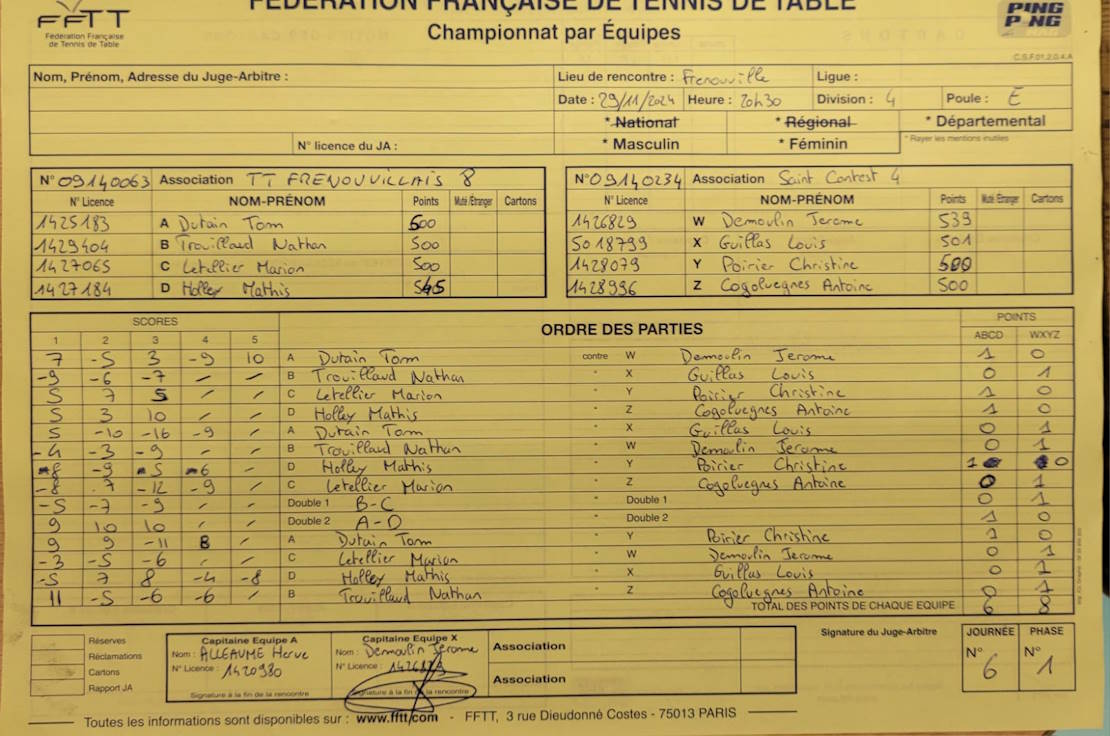 FÉDÉRATION FRANÇAISE DE TENNIS DE TABLE
FFTT
Fédération Française
de Tennis de Table
Championnat par Équipes
PING
PONG
C.S.F.01.2.0.4.A
Nom, Prénom, Adresse du Juge-Arbitre :
N° licence du JA :
Lieu de rencontre : Frenouville Ligue :
Date : 29/11/2024 Heure : 20h30 Division : 4 Poule : E
* National * Régional * Départemental
* Masculin * Féminin * Rayer les mentions inutiles
N° 09140063 Association TT FRENOUVILLAIS 8
N° Licence NOM-PRÉNOM Points Muté/Étranger Cartons
1425183 A Dutain Tom 500
1429404 B Trouillaud Nathan 500
1427065 C Letellier Marion 500
1427184 D Holley Mathis 545
N° 09140234 Association Saint Contest 4
N° Licence NOM-PRÉNOM Points Muté/Étranger Cartons
1426829 W Demoulin Jerome 539
5018799 X Guillas Louis 501
1428079 Y Poirier Christine 500
1428996 Z Cogoluegnes Antoine 500
SCORES ORDRE DES PARTIES POINTS
1 2 3 4 5 ABCD WXYZ
7 -5 3 -9 10 A Dutain Tom contre W Demoulin Jerome 1 0
-9 -6 -7 / / B Trouillaud Nathan " X Guillas Louis 0 1
5 7 5 / / C Letellier Marion " Y Poirier Christine 1 0
5 3 10 / / D Holley Mathis " Z Cogoluegnes Antoine 1 0
5 -10 -16 -9 / A Dutain Tom " X Guillas Louis 0 1
-4 -3 -9 / / B Trouillaud Nathan " W Demoulin Jerome 0 1
8 -9 5 6 / D Holley Mathis " Y Poirier Christine 1 0
-8 7 -12 -9 / C Letellier Marion " Z Cogoluegnes Antoine 0 1
-5 -7 -9 / / Double 1 B-C " Double 1 0 1
9 10 10 / / Double 2 A-D " Double 2 1 0
9 9 -11 8 / A Dutain Tom " Y Poirier Christine 1 0
-3 -5 -6 / / C Letellier Marion " W Demoulin Jerome 0 1
-5 7 8 -4 -8 D Holley Mathis " X Guillas Louis 0 1
11 -5 -6 -6 / B Trouillaud Nathan " Z Cogoluegnes Antoine 0 1
TOTAL DES POINTS DE CHAQUE EQUIPE 6 8
Réserves
Réclamations
Cartons
Rapport JA
Capitaine Equipe A
Nom : ALLEAUME Herve
N° Licence : 1420980
Signature à la fin de la rencontre
Capitaine Equipe X
Nom : Demoulin Jerome
N° Licence : 1426829
Signature à la fin de la rencontre
Association
Association
Signature du Juge-Arbitre
JOURNÉE PHASE
N° 6 N° 1
Toutes les informations sont disponibles sur : www.fftt.com - FFTT, 3 rue Dieudonné Costes - 75013 PARIS